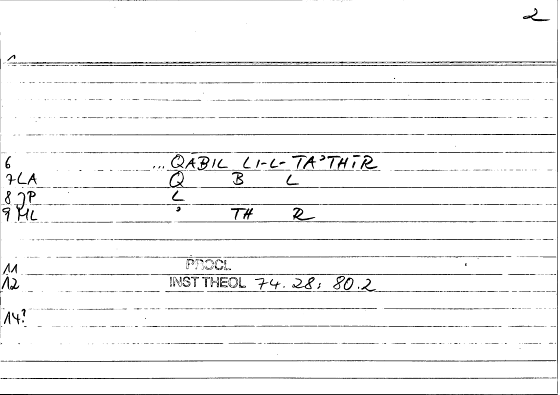 2
1
6 ... QABIL LI-L-TAʾTHĪR
7 LA Q B L
8 JP L
9 ML ʾ TH R
11 PROCL
12 INST THEOL 74.28; 80.2
14?